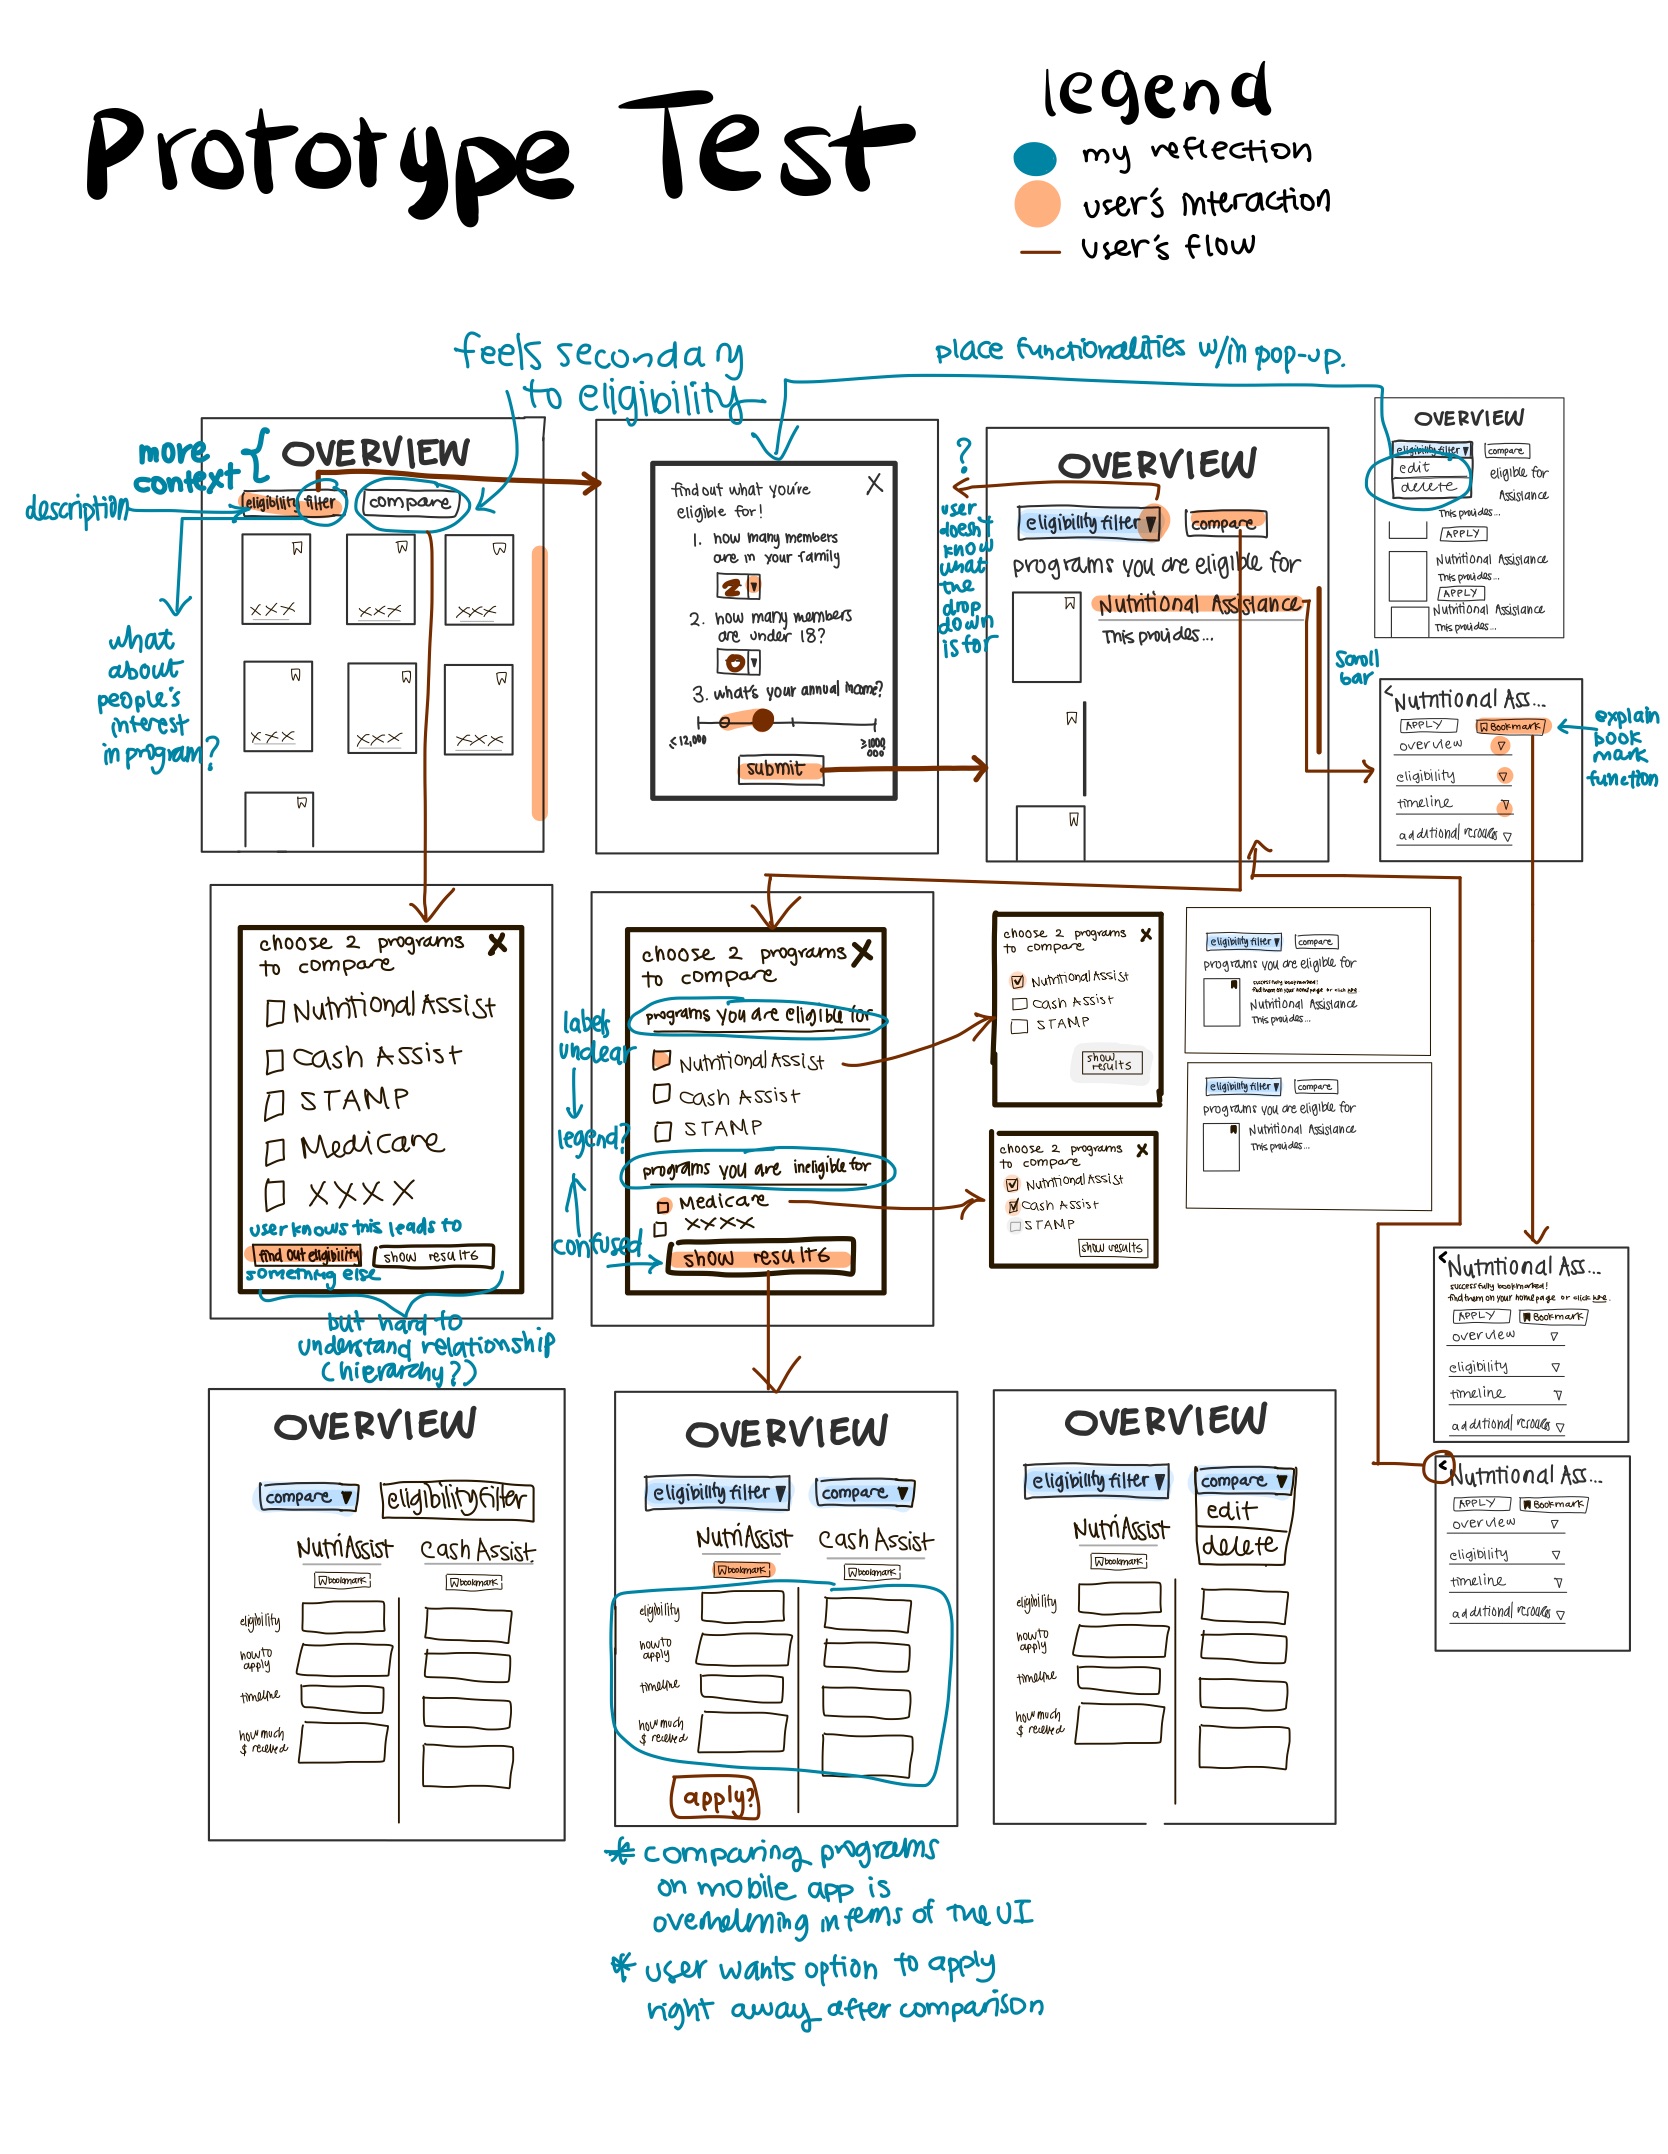 Prototype Test
legend
my reflection
user's interaction
user's flow
feels secondary
to eligibility
place functionalities w/in pop-up.
more
context
description
what
about
people's
interest
in program?
OVERVIEW
eligibility filter
compare
XXX
XXX
XXX
XXX
XXX
XXX
find out what you're
eligible for!
X
1. how many members
are in your family
2
2. how many members
are under 18?
0
3. what's your annual income?
≤12,000
≥1000
000
submit
?
user
doesn't
know
what
the
drop
down
is for
OVERVIEW
eligibility filter
compare
programs you are eligible for
Nutritional Assistance
This provides...
scroll
bar
OVERVIEW
eligibility filter
compare
edit
delete
eligible for
Assistance
This provides...
APPLY
Nutritional Assistance
This provides...
APPLY
Nutritional Assistance
This provides...
< Nutritional Ass...
APPLY
Bookmark
overview
eligibility
timeline
additional resources
explain
book
mark
function
choose 2 programs
to compare
X
Nutritional Assist
Cash Assist
STAMP
Medicare
XXXX
user knows this leads to
find out eligibility
show results
something else
but hard to
understand relationship
(hierarchy?)
labels
unclear
legend?
confused
choose 2 programs
to compare
X
programs you are eligible for
Nutritional Assist
Cash Assist
STAMP
programs you are ineligible for
Medicare
XXXX
show results
choose 2 programs
to compare
X
Nutritional Assist
Cash Assist
STAMP
show
results
choose 2 programs
to compare
X
Nutritional Assist
Cash Assist
STAMP
show results
eligibility filter
compare
programs you are eligible for
successfully bookmarked!
find them on your home page or click here
Nutritional Assistance
This provides...
eligibility filter
compare
programs you are eligible for
Nutritional Assistance
This provides...
< Nutritional Ass...
successfully bookmarked!
find them on your home page or click here.
APPLY
Bookmark
overview
eligibility
timeline
additional resources
< Nutritional Ass...
APPLY
Bookmark
overview
eligibility
timeline
additional resources
OVERVIEW
compare
eligibility filter
Nutri Assist
Cash Assist
bookmark
bookmark
eligibility
how to
apply
timeline
how much
$ received
OVERVIEW
eligibility filter
compare
Nutri Assist
Cash Assist
bookmark
bookmark
eligibility
how to
apply
timeline
how much
$ received
apply?
OVERVIEW
eligibility filter
compare
edit
delete
Nutri Assist
bookmark
eligibility
how to
apply
timeline
how much
$ received
* comparing programs
on mobile app is
overwhelming in terms of the UI
* user wants option to apply
right away after comparison